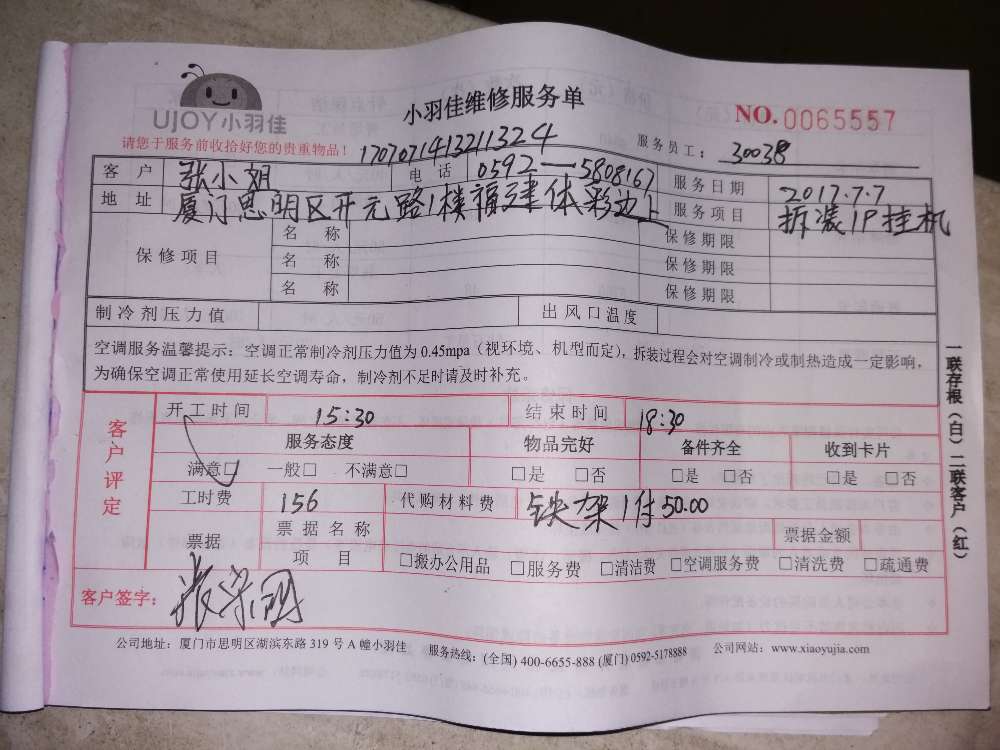 UJOY小羽佳
小羽佳维修服务单
NO.0065557
请您于服务前收拾好您的贵重物品！
1707071413211324
服务员工：30038
客户 张小姐 电话 0592-5808167 服务日期 2017.7.7
地址 厦门思明区开元路1楼福建体彩边上 服务项目 拆装1P挂机
保修项目 名称 保修期限
名称 保修期限
名称 保修期限
制冷剂压力值 出风口温度
空调服务温馨提示：空调正常制冷剂压力值为0.45mpa（视环境、机型而定），拆装过程会对空调制冷或制热造成一定影响，
为确保空调正常使用延长空调寿命，制冷剂不足时请及时补充。
客户评定
开工时间 15:30 结束时间 18:30
服务态度 物品完好 备件齐全 收到卡片
满意□ 一般□ 不满意□ □是 □否 □是 □否 □是 □否
工时费 156 代购材料费 铁架1付50.00
票据 票据名称 票据金额
项目 □搬办公用品 □服务费 □清洁费 □空调服务费 □清洗费 □疏通费
客户签字：
公司地址：厦门市思明区湖滨东路319号A幢小羽佳 服务热线：(全国) 400-6655-888 (厦门) 0592-5178888 公司网站：www.xiaoyujia.com
一联存根（白）二联客户（红）